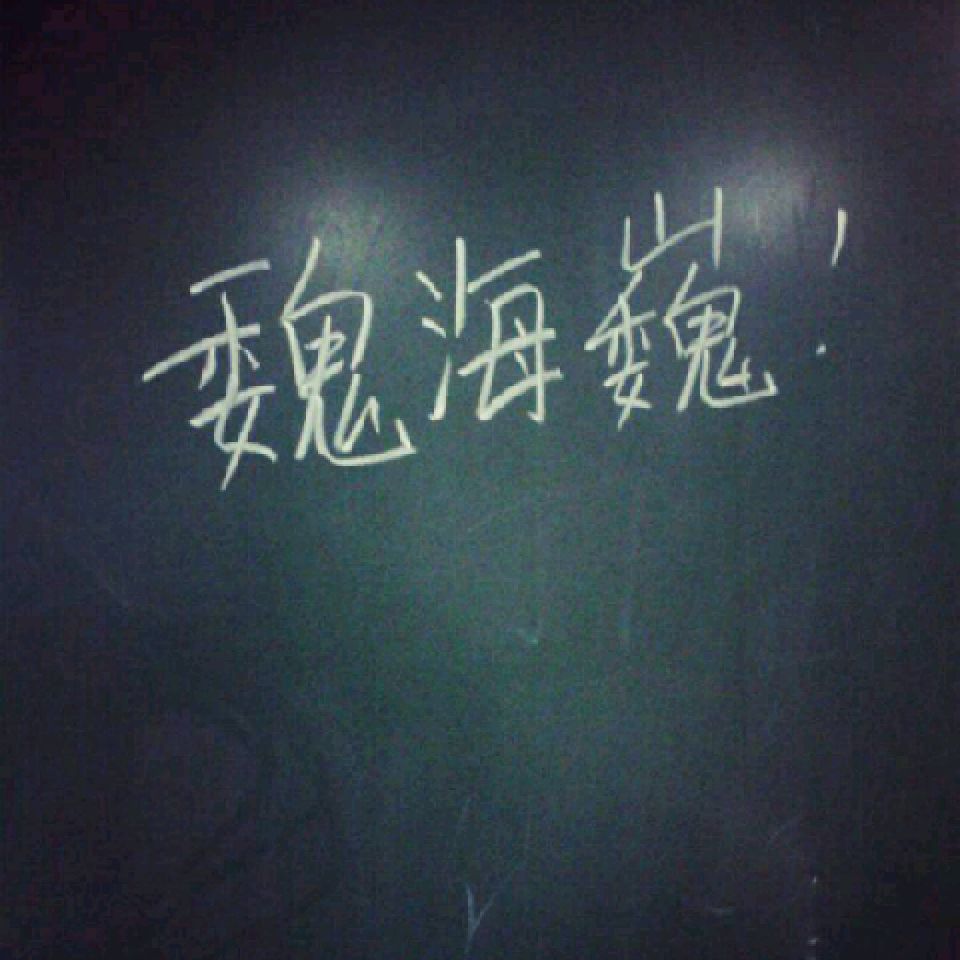 魏海巍!